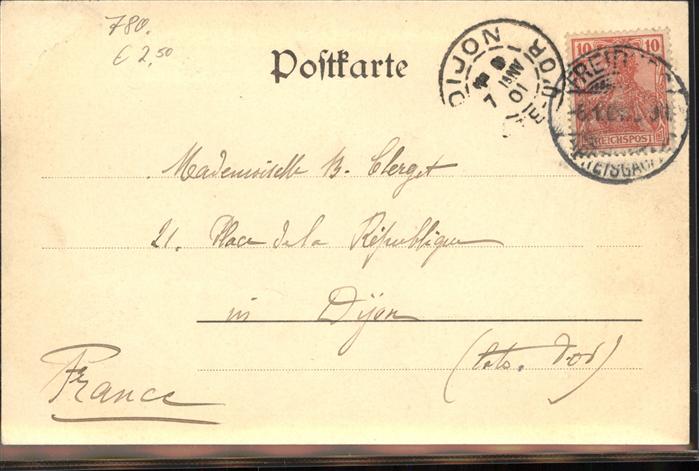 780.
€ 2,50
Postkarte
DIJON
7 JANV
01
CÔTE-D'OR
10 10
REICHSPOST
FREIBURG
BREISGAU
Mademoiselle B. Clerget
21. Place de la République
in Dijon
(Côte. d'or)
France